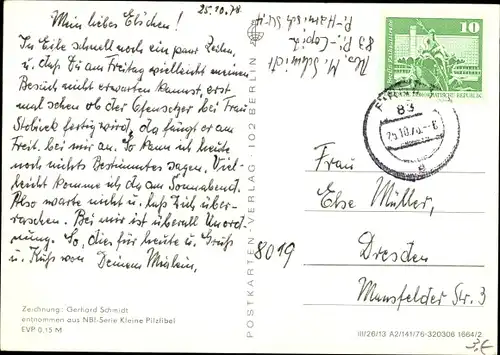 25.10.78
Mein liebes Elschen!
In Eile schnell noch ein paar Zeilen,
u. daß Du am Freitag vielleicht meinen
Besuch nicht erwarten kannst, erst
mal sehen ob der Ofensetzer bei Frau
fertig wird, da fängt er am
Freit. bei mir an. So kann ich heute
noch nichts Bestimmtes sagen. Viel-
leicht komme ich da am Sonnabend.
Also warte nicht u. laß Dich über-
raschen. Bei mir ist überall Unord-
nung. So, dies für heute u. Gruß
u. Kuß von Deinem
Zeichnung: Gerhard Schmidt
entnommen aus NBI-Serie Kleine Pilzfibel
EVP 0,15 M
POSTKARTEN-VERLAG 102 BERLIN
Abs. M. Schmidt
83 P.-Copitz
10
DEUTSCHE DEMOKRATISCHE REPUBLIK
83
25.10.78.-6
a
Frau
Else Müller,
8019
Dresden
Mansfelder Str. 3
III/26/13 A2/141/76-320306 1664/2
3,€